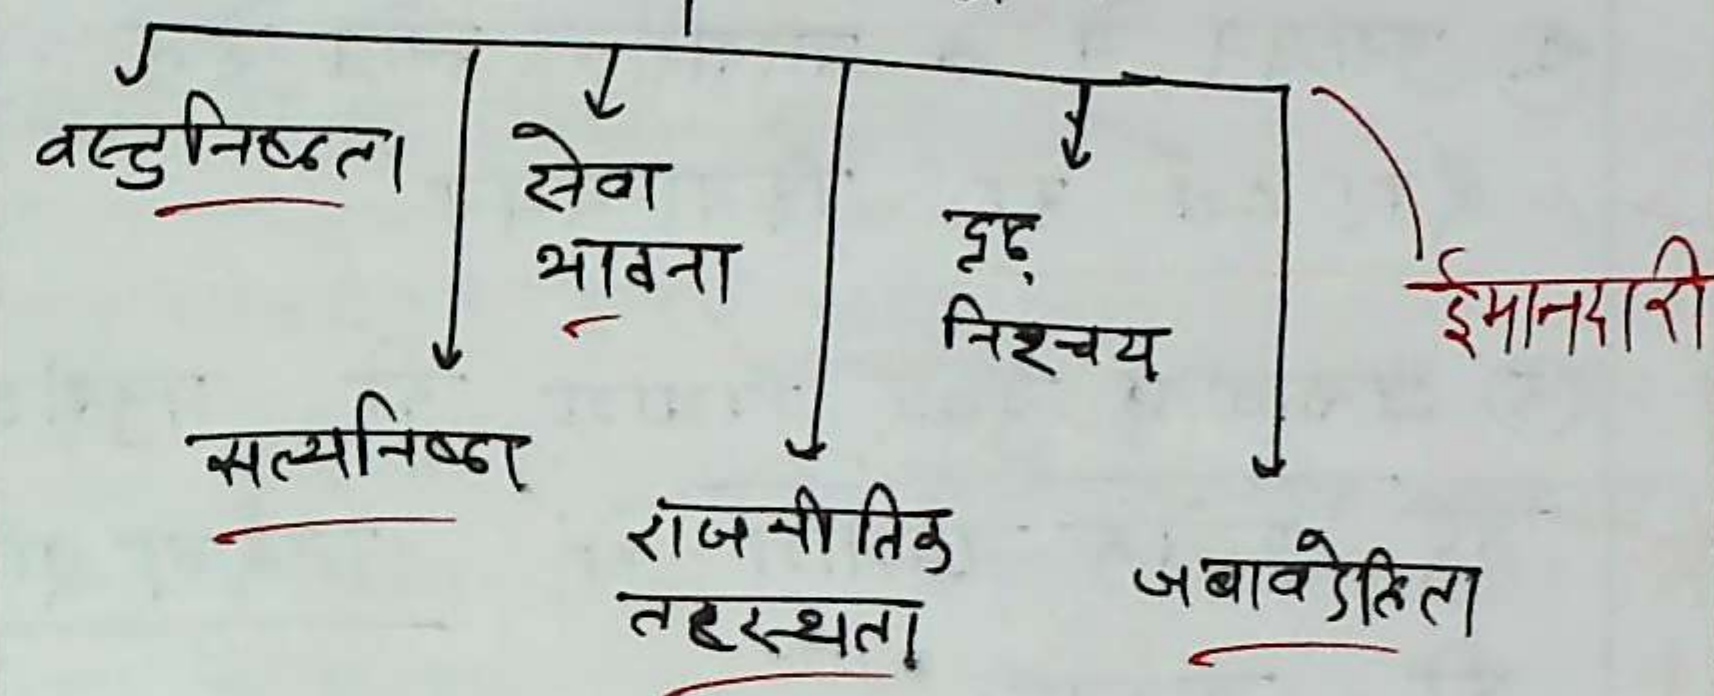 वस्तुनिष्ठता
सेवा
भावना
दृढ़
निश्चय
ईमानदारी
सत्यनिष्ठा
राजनीतिक
तटस्थता
जबावदेहिता